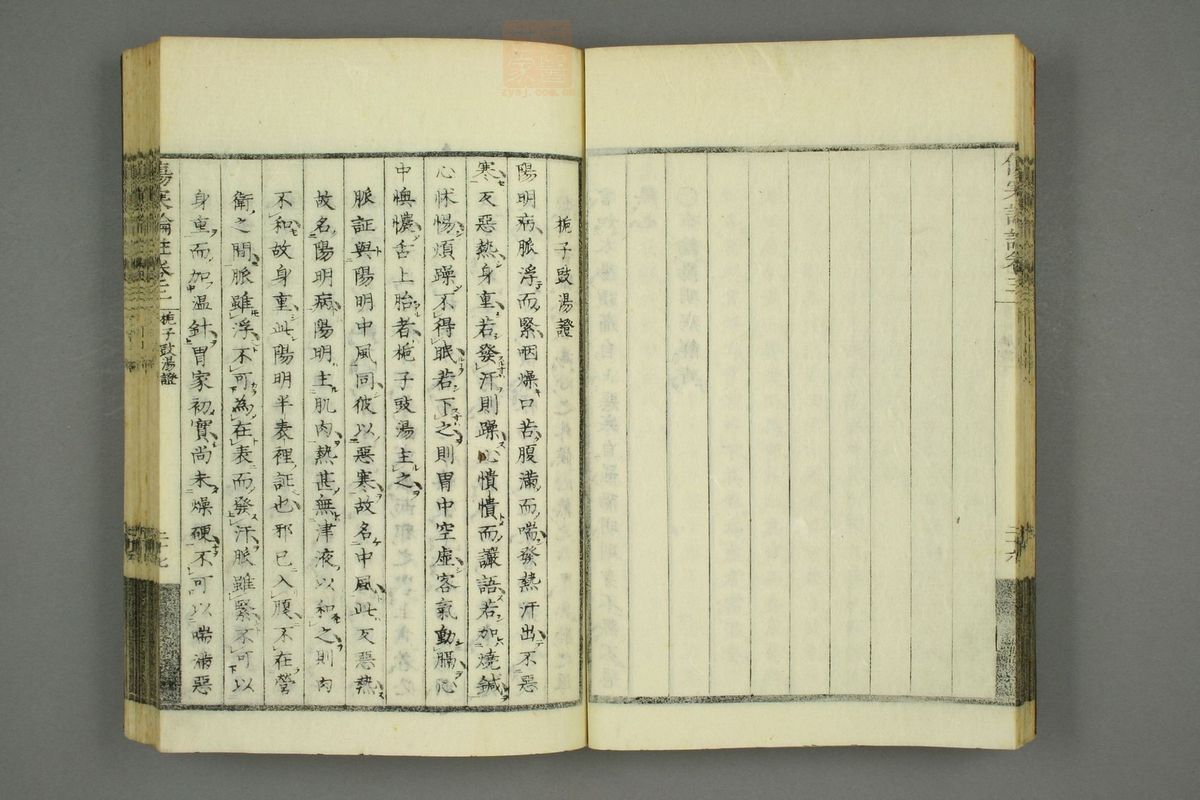 梔子豉湯證
陽明病脈浮而緊咽燥口苦腹滿而喘發熱汗出不惡
寒反惡熱身重若發汗則躁心憒憒而讝語若加燒鍼
心怵惕煩躁不得眠若下之則胃中空虛客氣動膈心
中懊憹舌上胎者梔子豉湯主之
脈証與陽明中風同彼以惡寒故名中風此反惡熱
故名陽明病陽明主肌肉熱甚無津液以和之則肉
不和故身重此陽明半表裡証也邪已入腹不在營
衛之間脈雖浮不可為在表而發汗脈雖緊不可以
身重而加温針胃家初實尚未燥硬不可以喘滿惡
傷寒論註卷三
梔子豉湯證
二十七
zysj.com.cn